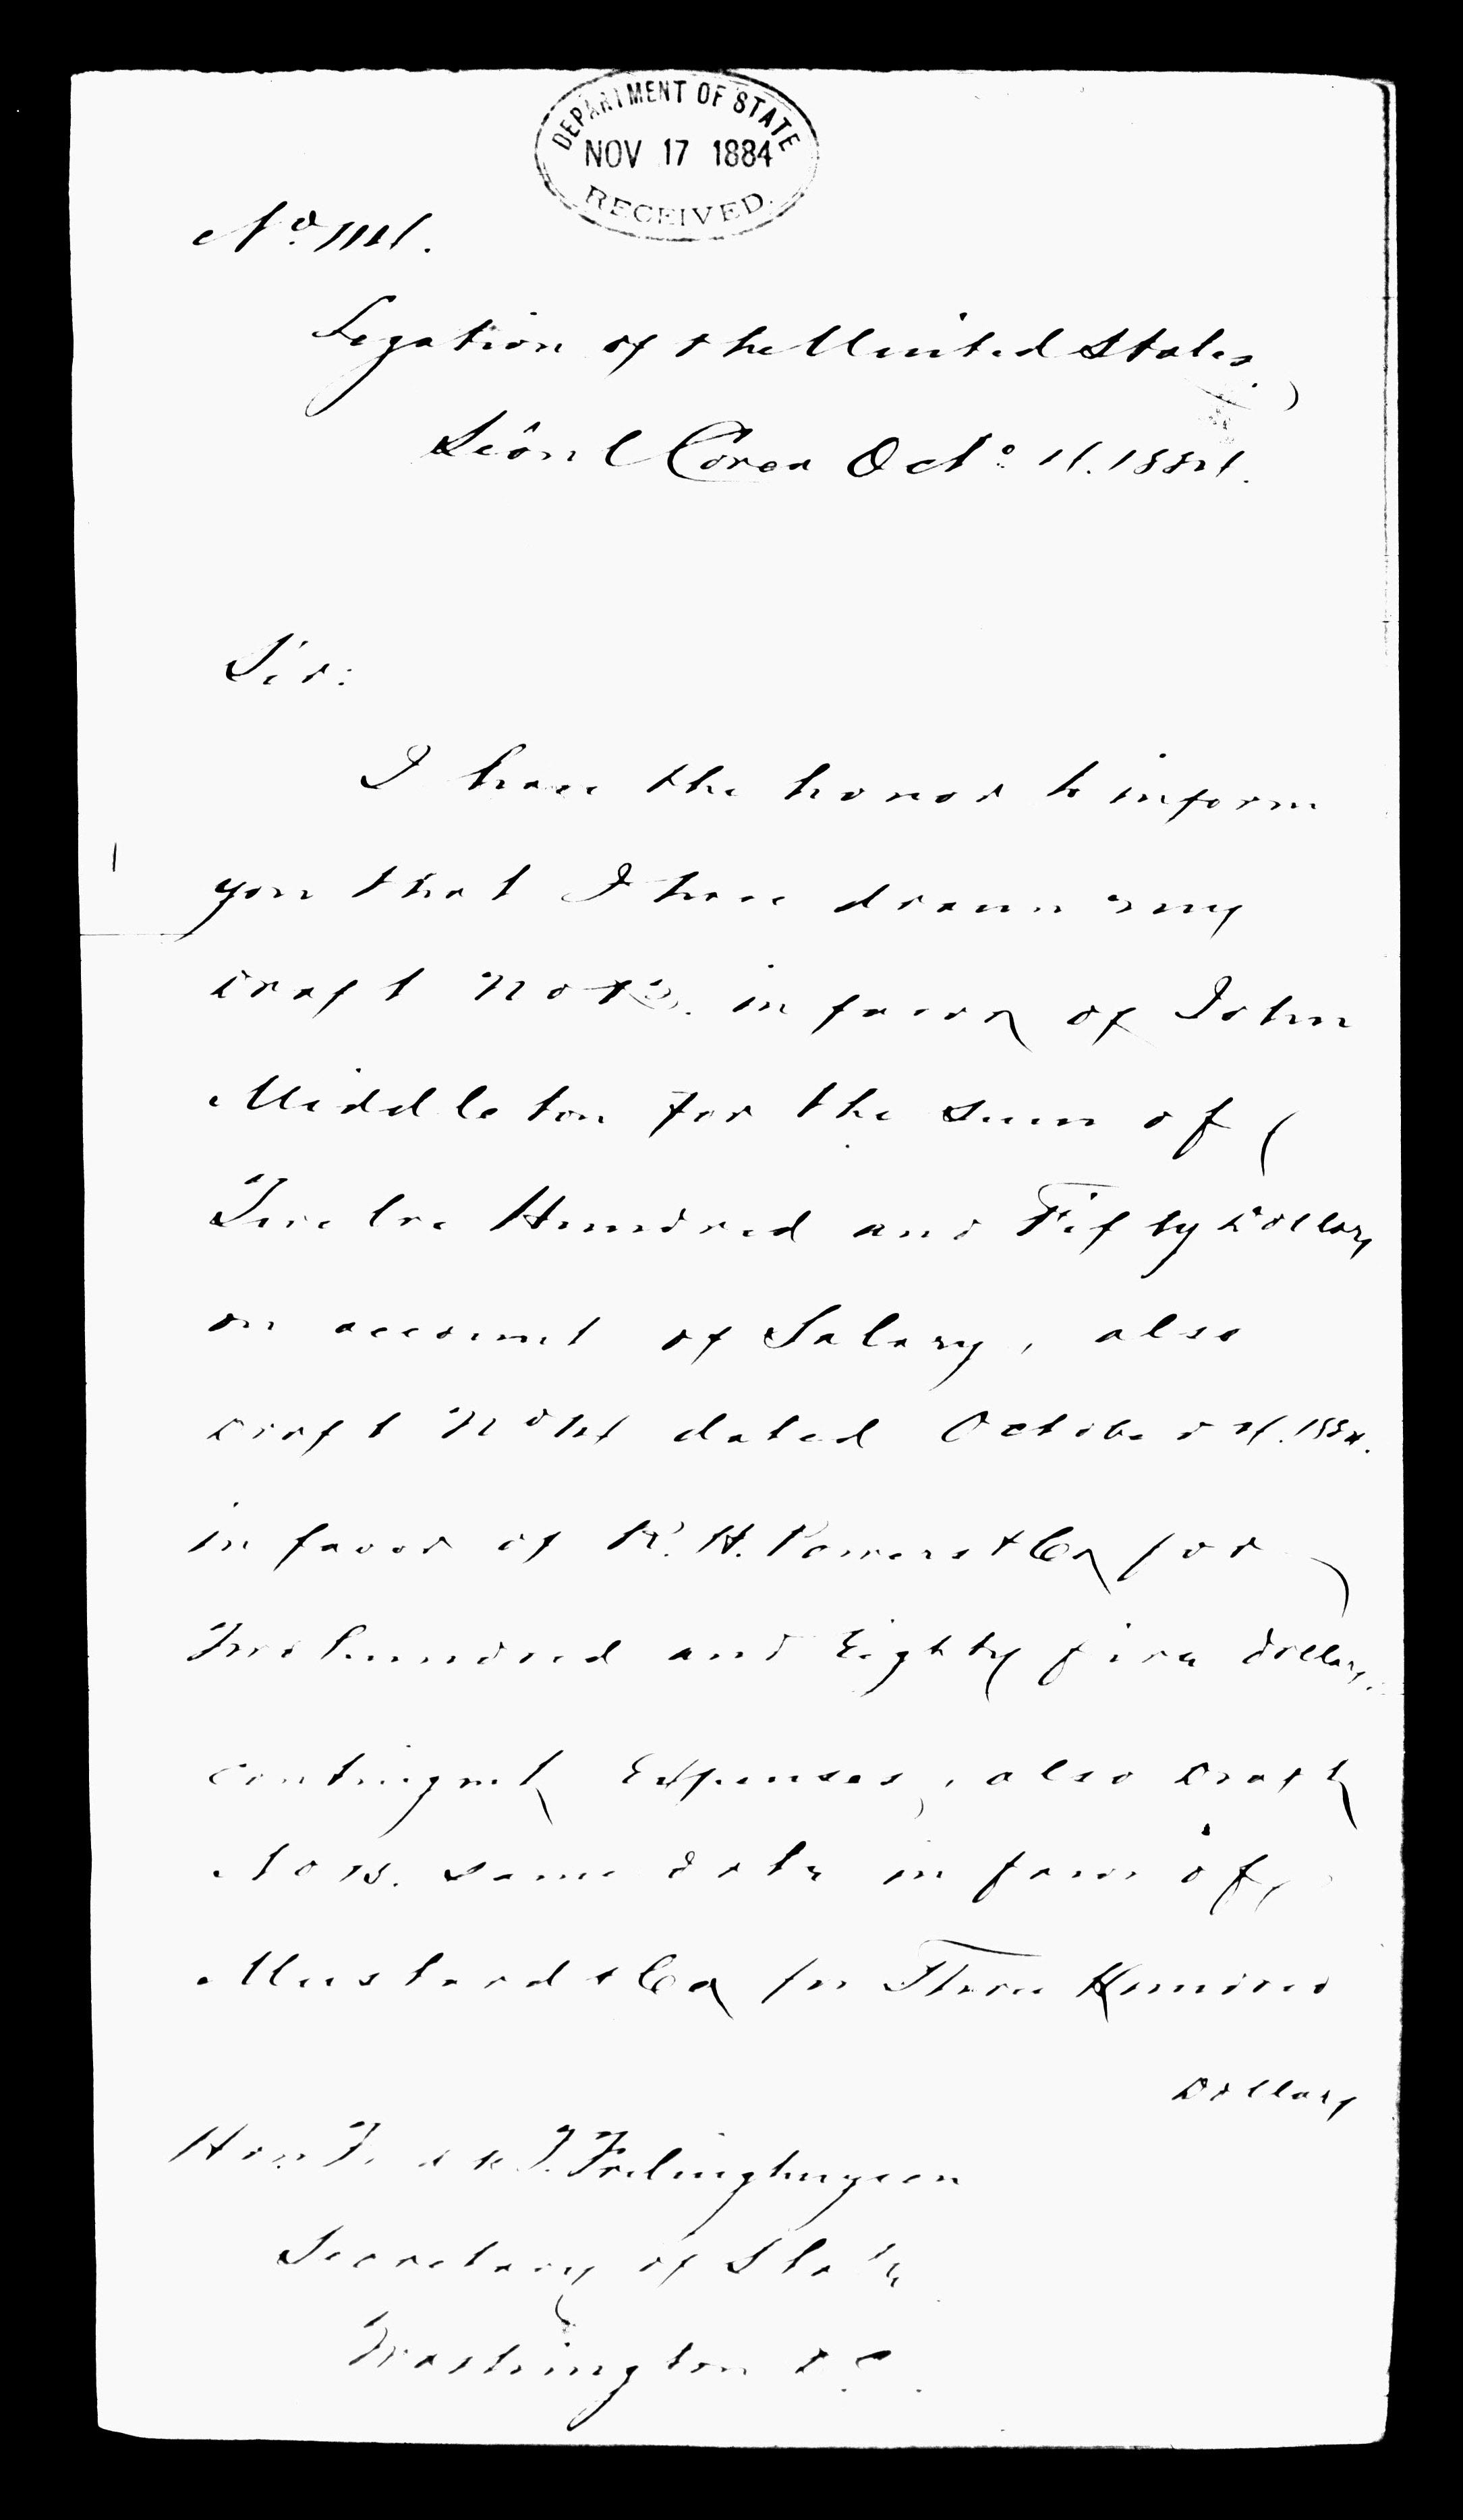 DEPARTMENT OF STATE
NOV 17 1884
RECEIVED.
No.
Legation of the United States
Seoul Corea Octo. 1884.
Sir:
I have the honor to inform
you that I have drawn my
Draft No in favor of John
Middleton for the sum of
Twelve Hundred and Fifty Dollars
on account of Salary, also
Draft No dated October 1884.
in favor of R. H. Powers & Co for
Two hundred and Eighty five dollars
contingent Expenses, also Draft
No same date in favor of
Mustard & Co for Three Hundred
Dollars
Hon F. T. Frelinghuysen
Secretary of State
Washington D.C.